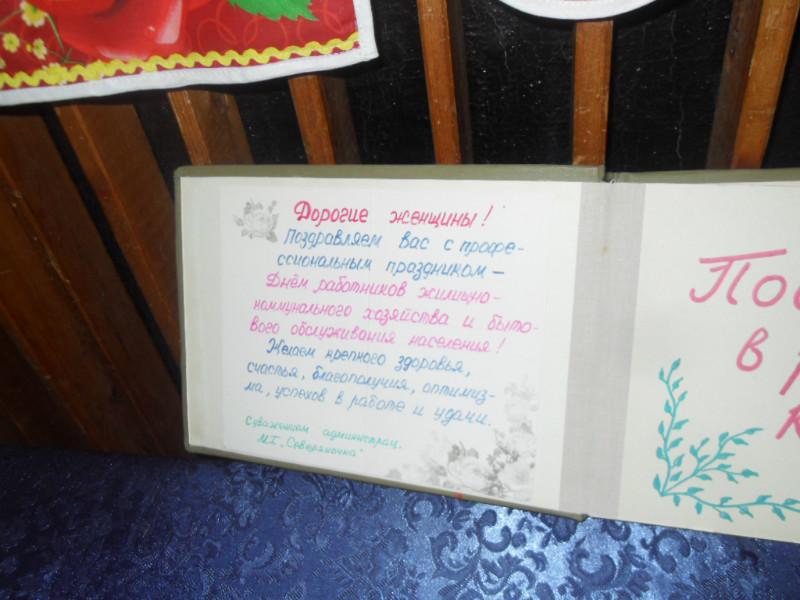 Дорогие женщины!
Поздравляем вас с профе-
ссиональным праздником –
Днём работников жилищно-
коммунального хозяйства и быто-
вого обслуживания населения!
Желаем крепкого здоровья,
счастья, благополучия, оптимиз-
ма, успехов в работе и удачи.
С уважением администрац.
"Северяночка"
в